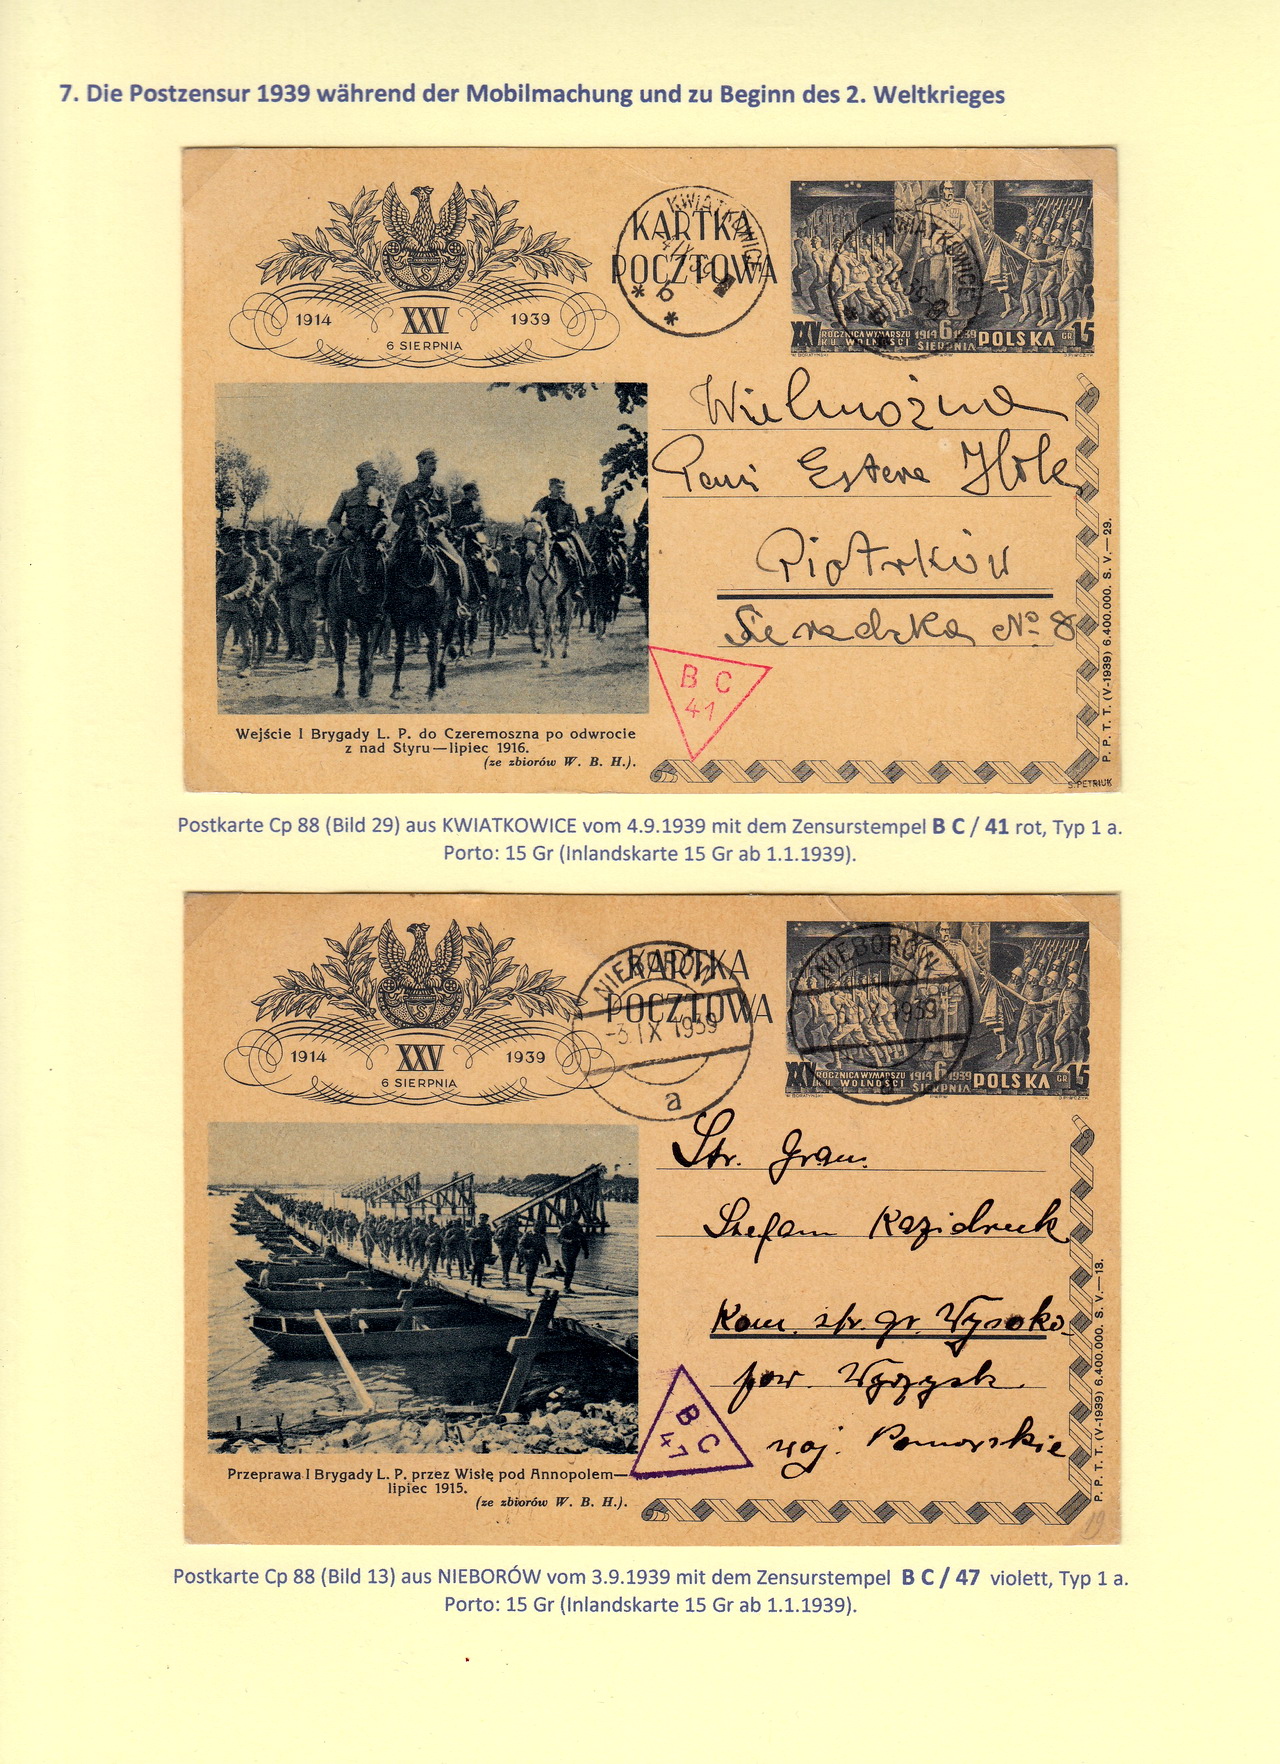 7. Die Postzensur 1939 während der Mobilmachung und zu Beginn des 2. Weltkrieges
KARTKA
POCZTOWA
KWIATKOWICE
KWIATKOWICE
b
1914 XXV 1939
6 SIERPNIA
XXV ROCZNICA WYMARSZU 1914 6 1939 POLSKA GR 15
KU WOLNOŚCI SIERPNIA
W. BORATYŃSKI
Wielmożna
Pani Estera
Piotrków
Sieradzka No 8
B C
41
Wejście I Brygady L. P. do Czeremoszna po odwrocie
z nad Styru—lipiec 1916.
(ze zbiorów W. B. H.).
P. P. T. T. (V-1939) 6.400.000. S. V.—29.
S. PETRIUK
Postkarte Cp 88 (Bild 29) aus KWIATKOWICE vom 4.9.1939 mit dem Zensurstempel B C / 41 rot, Typ 1 a.
Porto: 15 Gr (Inlandskarte 15 Gr ab 1.1.1939).
KARTKA
POCZTOWA
NIEBORÓW
-3.IX.1939
a
NIEBORÓW
-3.IX.1939
1914 XXV 1939
6 SIERPNIA
XXV ROCZNICA WYMARSZU 1914 6 1939 POLSKA GR 15
KU WOLNOŚCI SIERPNIA
W. BORATYŃSKI
Str. Gran.
Stefan
Kom. str. gr. Wysoka
pow. Wyrzysk
woj. Pomorskie
B C
47
Przeprawa I Brygady L. P. przez Wisłę pod Annopolem—
lipiec 1915.
(ze zbiorów W. B. H.).
P. P. T. T. (V-1939) 6.400.000. S. V.—13.
19
Postkarte Cp 88 (Bild 13) aus NIEBORÓW vom 3.9.1939 mit dem Zensurstempel B C / 47 violett, Typ 1 a.
Porto: 15 Gr (Inlandskarte 15 Gr ab 1.1.1939).